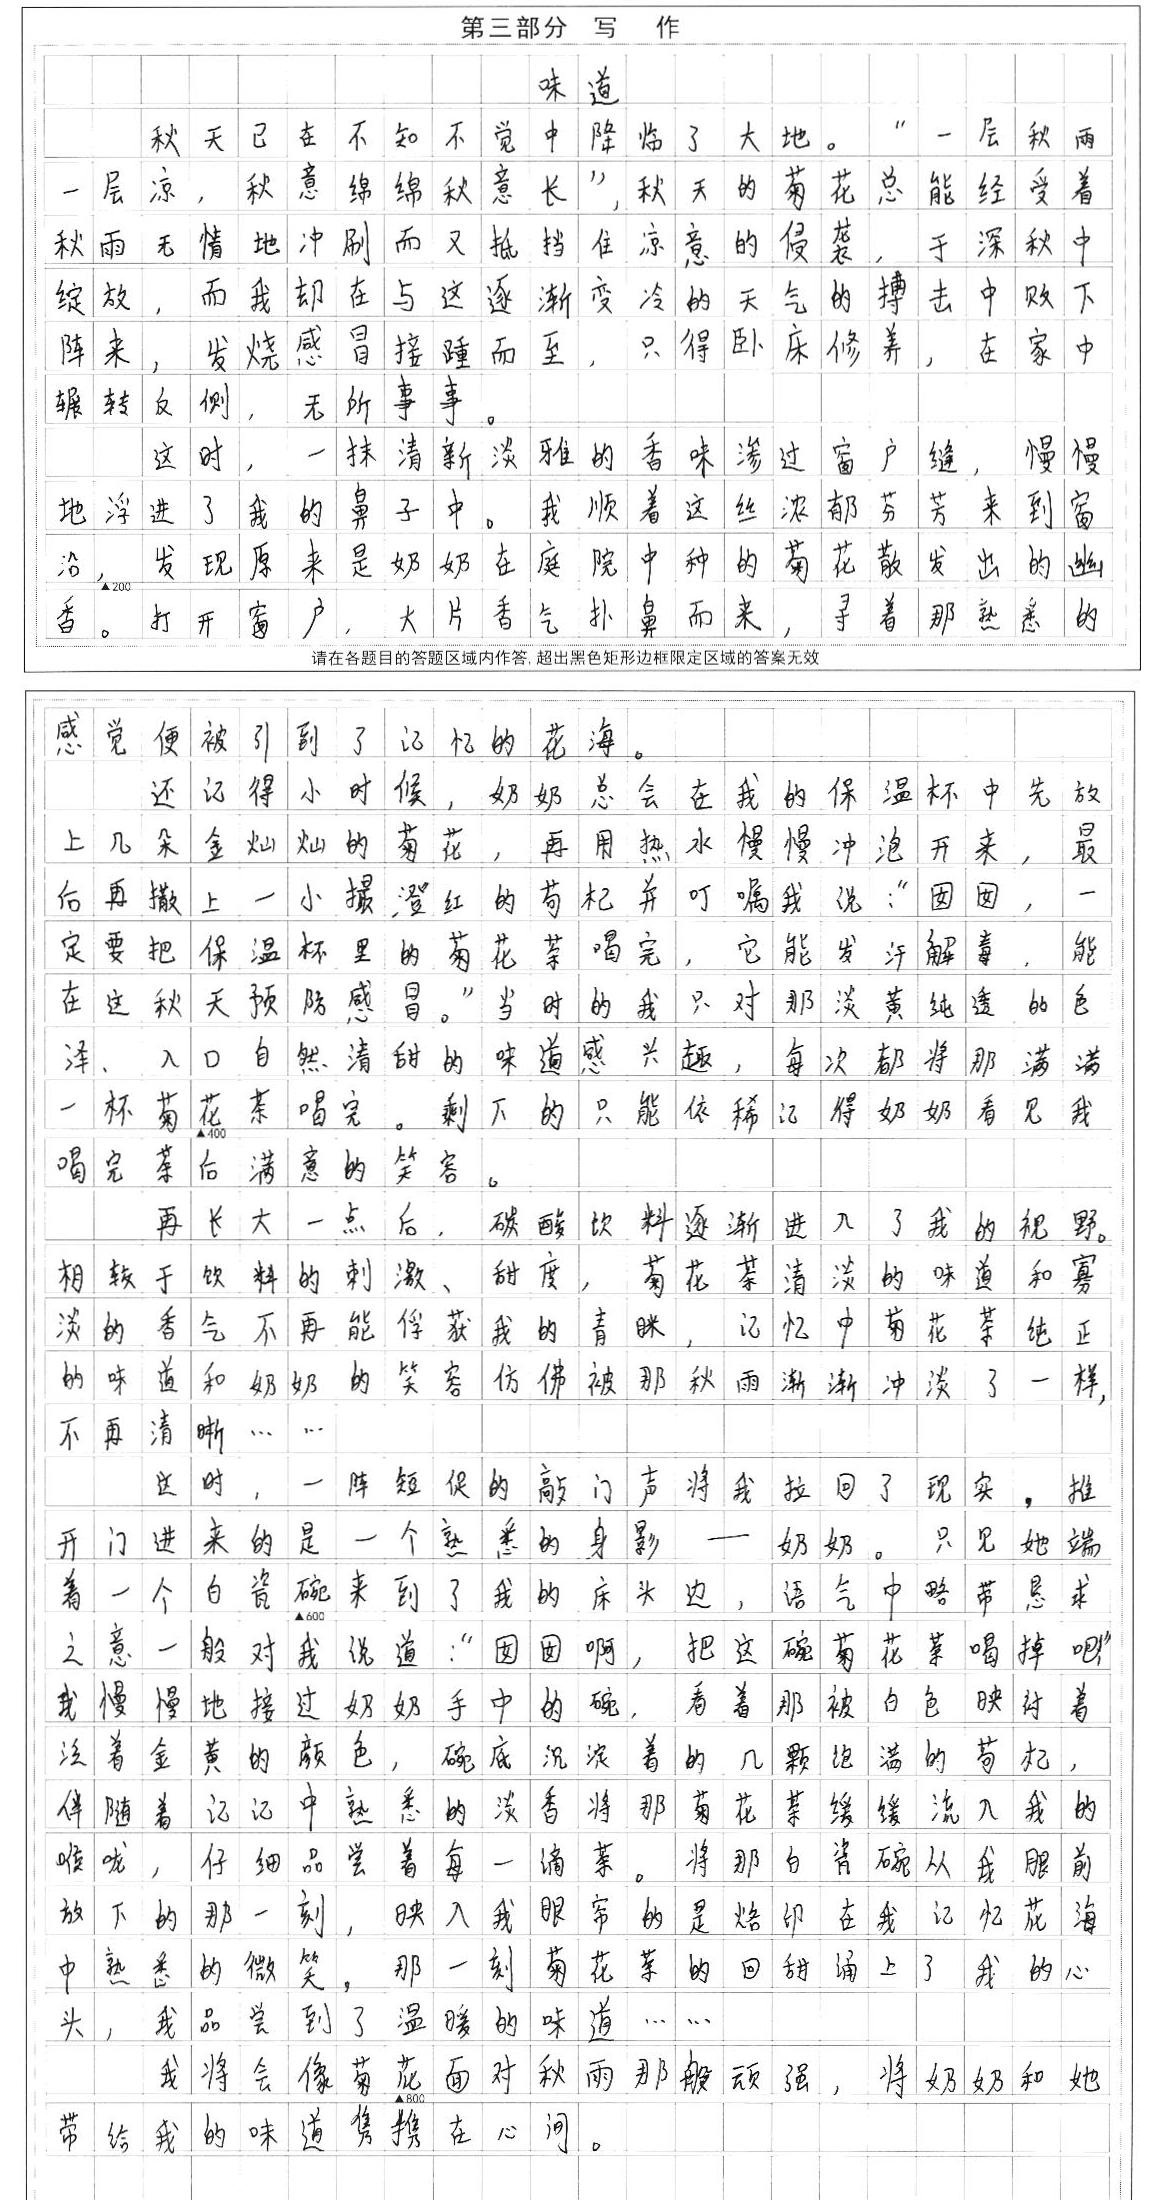 第三部分 写 作
味道
秋天已在不知不觉中降临了大地。“一层秋雨
一层凉，秋意绵绵秋意长”，秋天的菊花总能经受着
秋雨无情地冲刷而又抵挡住凉意的侵袭，于深秋中
绽放，而我却在与这逐渐变冷的天气的搏击中败下
阵来，发烧感冒接踵而至，只得卧床修养，在家中
辗转反侧，无所事事。
这时，一抹清新淡雅的香味渗过窗户缝，慢慢
地浮进了我的鼻子中。我顺着这丝浓郁芬芳来到窗
沿，发现原来是奶奶在庭院中种的菊花散发出的幽
▲200
香。打开窗户，大片香气扑鼻而来，寻着那熟悉的
请在各题目的答题区域内作答，超出黑色矩形边框限定区域的答案无效
感觉便被引到了记忆的花海。
还记得小时候，奶奶总会在我的保温杯中先放
上几朵金灿灿的菊花，再用热水慢慢冲泡开来，最
后再撒上一小撮澄红的苟杞并叮嘱我说：“囡囡，一
定要把保温杯里的菊花茶喝完，它能发汗解毒，能
在这秋天预防感冒。”当时的我只对那淡黄纯透的色
泽、入口自然清甜的味道感兴趣，每次都将那满满
一杯菊花茶喝完。剩下的只能依稀记得奶奶看见我
▲400
喝完茶后满意的笑容。
再长大一点后，碳酸饮料逐渐进入了我的视野。
相较于饮料的刺激、甜度，菊花茶清淡的味道和寡
淡的香气不再能俘获我的青眯，记忆中菊花茶纯正
的味道和奶奶的笑容仿佛被那秋雨渐渐冲淡了一样，
不再清晰……
这时，一阵短促的敲门声将我拉回了现实，推
开门进来的是一个熟悉的身影——奶奶。只见她端
着一个白瓷碗来到了我的床头边，语气中略带恳求
▲600
之意一般对我说道：“囡囡啊，把这碗菊花茶喝掉吧！”
我慢慢地接过奶奶手中的碗，看着那被白色映衬着
泛着金黄的颜色，碗底沉淀着的几颗饱满的苟杞，
伴随着记记中熟悉的淡香将那菊花茶缓缓流入我的
喉咙，仔细品尝着每一滴茶。将那白瓷碗从我眼前
放下的那一刻，映入我眼帘的是烙印在我记忆花海
中熟悉的微笑，那一刻菊花茶的回甜涌上了我的心
头，我品尝到了温暖的味道……
我将会像菊花面对秋雨那般顽强，将奶奶和她
▲800
带给我的味道隽携在心间。